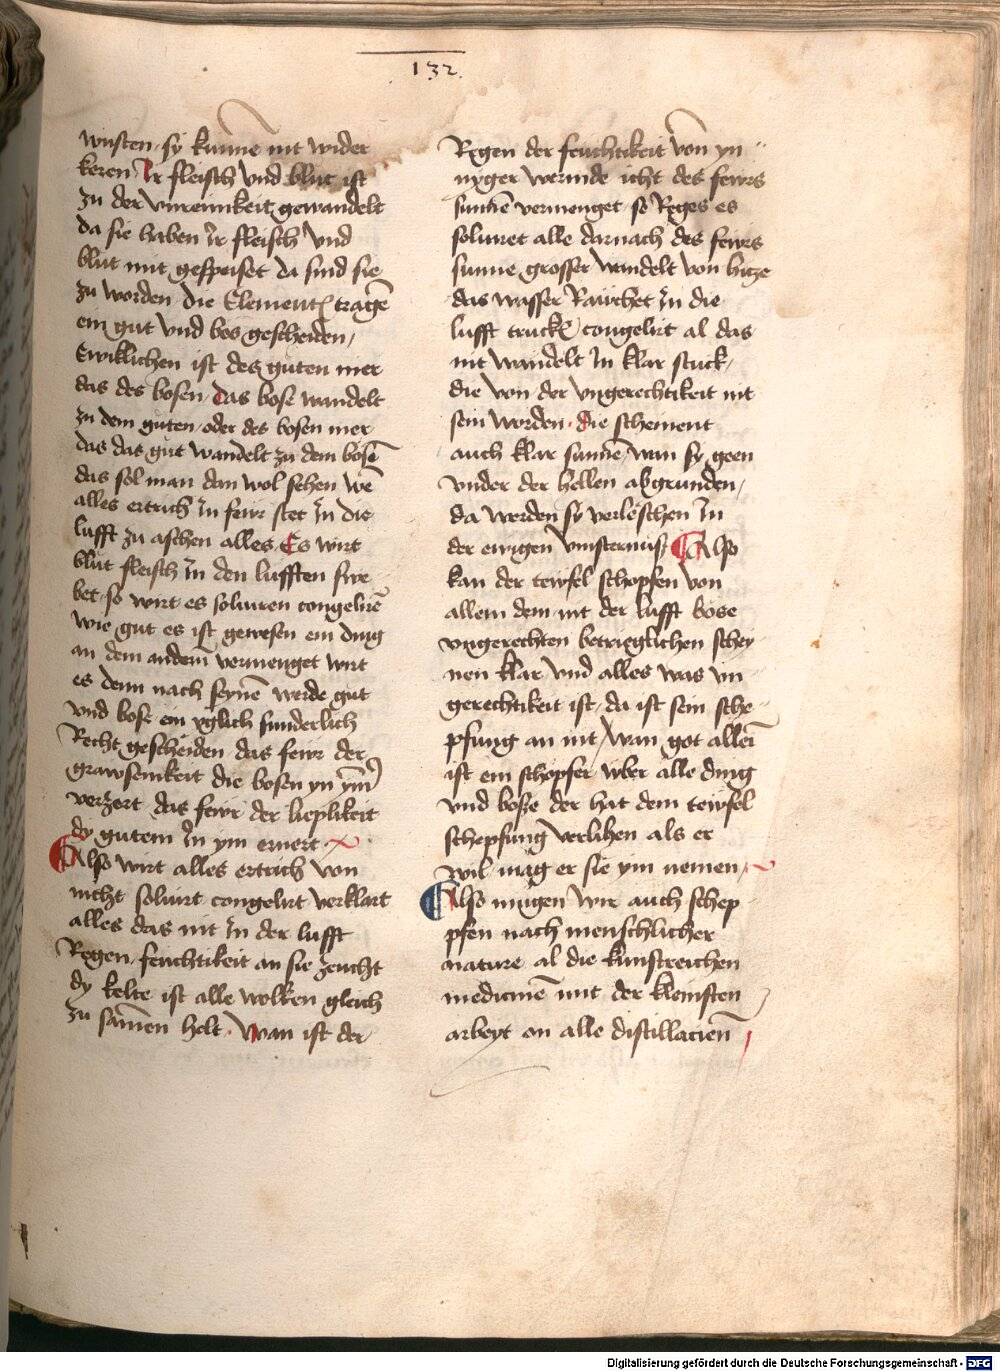 132.
wusten sy kunne nit wider
keren Ir fleisch vnd blut ist
zu der vnreinikeit gewandelt
da sie haben Ir fleisch vnd
blut mit gespeiset da sind sie
zu worden die Element tragē
ein gut vnd bos gescheiden,
Ewiklichen ist des guten mer
das des bosen das bose wandelt
zu dem guten oder des bosen mer
das das gut wandelt zu dem bosē
das sol man dan wol sehen wē
alles ertrich In feur stet In die
lufft zu aschen alles Es wirt
blut fleisch In den lufften swe-
bet so wirt es soluiren congelirē
wie gut es ist gewesen ein ding
an dem andern vermenget wirt
es denn nach seynē werde gut
vnd bose ein yglich sunderlich
Recht gescheiden das feur der
grawsemkeit die bosen yn ym
verzert das fewr der lieplikeit
dy gutem In ym ernert
Also wirt alles ertrich von
nicht soluirt congelirt verklart
alles das mit In der lufft
Regen, feuchtikeit an sie zeucht
dy kelte ist alle wolken gleich
zu samen helt. Wan ist der
Regen der feuchtikeit von yn
nyger werinde icht des fewrs
sunnē vermenget so Reges es
soluiret alle darnach des fewrs
sunne grosser wandelt von hitze
das wasser Rauchet In die
lufft truckē congelirt al das
mit wandelt In klar stuck,
die von der vngerechtikeit nit
sein worden. die scheinent
auch klar sunnē, wan sy geen
vnder der hellen abgrunden,
da werden sy verleschen In
der ewigen vinsternuß Also
kan der tewfel schopfen von
allem dem mit der lufft bose
vngerechten betrieglichen schey-
nen klar vnd alles was vn-
gerechtikeit ist, da ist sein sche-
pfung an mit, wan got allei
ist ein schopfer vber alle ding
vnd bosse der hat dem tewfel
schepfung verlihen als er
wil mag er sie ym nemen,
Also mugen wir auch schep-
pfen nach menschlicher
nature al die kunstreichen
medicinē mit der kleinsten
arbeyt on alle distillacien,
Digitalisierung gefördert durch die Deutsche Forschungsgemeinschaft - DFG